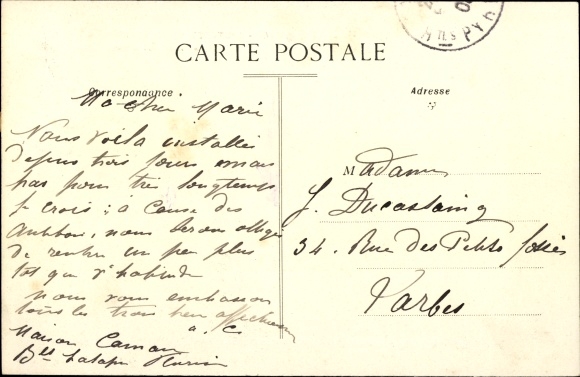 CARTE POSTALE
Correspondance
Adresse
Ma chère Marie
Nous voila installés
depuis trois jours mais
pas pour très longtemps
je crois; à cause des
nous serons obligés
de rentrer un peu plus
tôt que d'habitude
nous vous embrassons
tous les trois bien affectueusement
Maison
Madame
J. Ducastaing
34. Rue des Petits fossés
Tarbes